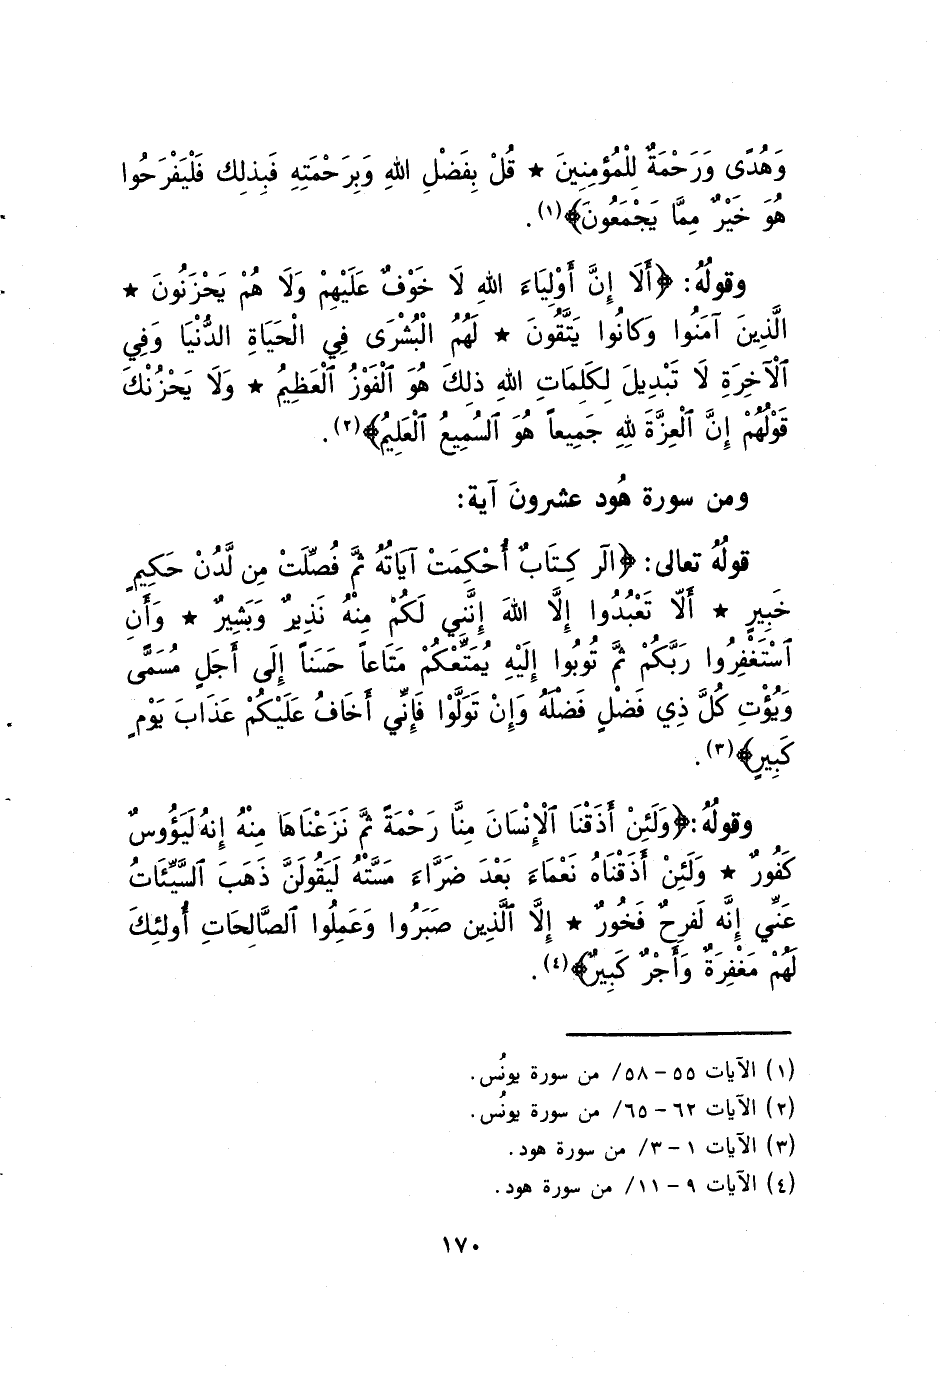 وَهُدًى وَرَحْمَةٌ لِلْمُؤمِنِينَ ★ قُلْ بِفَضْلِ اللهِ وَبِرَحْمَتِهِ فَبِذلِك فَلْيَفْرَحُوا
هُوَ خَيْرٌ مِمَّا يَجْمَعُونَ﴾(١).
وقولُهُ: ﴿أَلَا إِنَّ أَوْلِيَاءَ اللهِ لَا خَوْفٌ عَلَيْهِمْ وَلَا هُمْ يَحْزَنُونَ ★
الَّذِينَ آمَنُوا وَكانُوا يَتَّقُونَ ★ لَهُمُ الْبُشْرَى فِي الْحَيَاةِ الدُّنْيَا وَفِي
ٱلْآخِرَةِ لَا تَبْدِيلَ لِكَلِمَاتِ اللهِ ذلِكَ هُوَ ٱلْفَوْزُ ٱلْعَظِيمُ ★ وَلَا يَحْزُنْكَ
قَوْلُهُمْ إِنَّ ٱلْعِزَّةَ لِلهِ جَمِيعاً هُوَ ٱلسَّمِيعُ ٱلْعَلِيمُ﴾(٢).
ومن سورة هُود عشرونَ آية:
قولُهُ تعالى: ﴿الٓر كِتَابٌ أُحْكِمَتْ آيَاتُهُ ثُمَّ فُصِّلَتْ مِن لَّدُنْ حَكِيمٍ
خَبِيرٍ ★ أَلَّا تَعْبُدُوا إِلَّا اللهَ إِنَّنِي لَكُمْ مِنْهُ نَذِيرٌ وَبَشِيرٌ ★ وَأَنِ
ٱسْتَغْفِرُوا رَبَّكُمْ ثُمَّ تُوبُوا إِلَيْهِ يُمَتِّعْكُمْ مَتَاعاً حَسَناً إِلَى أَجَلٍ مُسَمًّى
وَيُؤْتِ كُلَّ ذِي فَضْلٍ فَضْلَهُ وَإِنْ تَوَلَّوْا فَإِنِّي أَخَافُ عَلَيْكُمْ عَذَابَ يَوْمٍ
كَبِيرٍ﴾(٣).
وقولُهُ:﴿وَلَئِنْ أَذَقْنَا ٱلْإِنْسَانَ مِنَّا رَحْمَةً ثُمَّ نَزَعْنَاهَا مِنْهُ إِنهُ لَيَؤُوسٌ
كَفُورٌ ★ وَلَئِنْ أَذَقْنَاهُ نَعْمَاءَ بَعْدَ ضَرَّاءَ مَسَّتْهُ لَيَقُولَنَّ ذَهَبَ ٱلسَّيِّئَاتُ
عَنِّي إِنَّه لَفَرِحٌ فَخُورٌ ★ إِلَّا ٱلَّذِين صَبَرُوا وَعَمِلُوا ٱلصَّالِحَاتِ أُولئِكَ
لَهُمْ مَغْفِرَةٌ وَأَجْرٌ كَبِيرٌ﴾(٤).
(١) الآيات ٥٥ - ٥٨/ من سورة يونُس.
(٢) الآيات ٦٢ - ٦٥/ من سورة يونُس.
(٣) الآيات ١ - ٣/ من سورة هود.
(٤) الآيات ٩ - ١١/ من سورة هود.
١٧٠